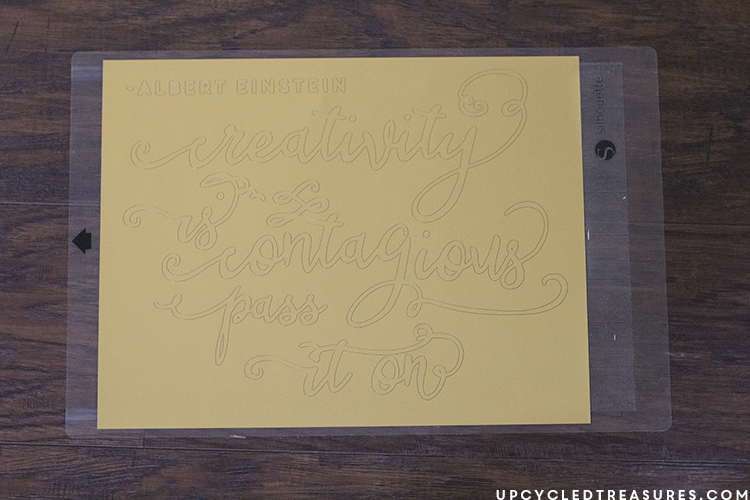 -ALBERT EINSTEIN
creativity
is
contagious
pass
it on
silhouette
UPCYCLEDTREASURES.COM